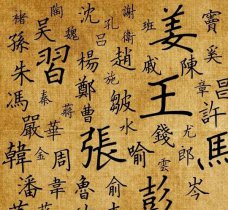 褚 陶 魏 沈 孔 謝 姜 竇
孫 吳 呂 衛 班 戚 奚
朱 習 蔣 楊 趙 施 陳
馮 秦 鄭 皺 王 魯 許
嚴 蔣 曹 水 錢 尤 馬
韓 華 張 喻 雲 郎
金 周 俞 岑
潘 章 魯 彭